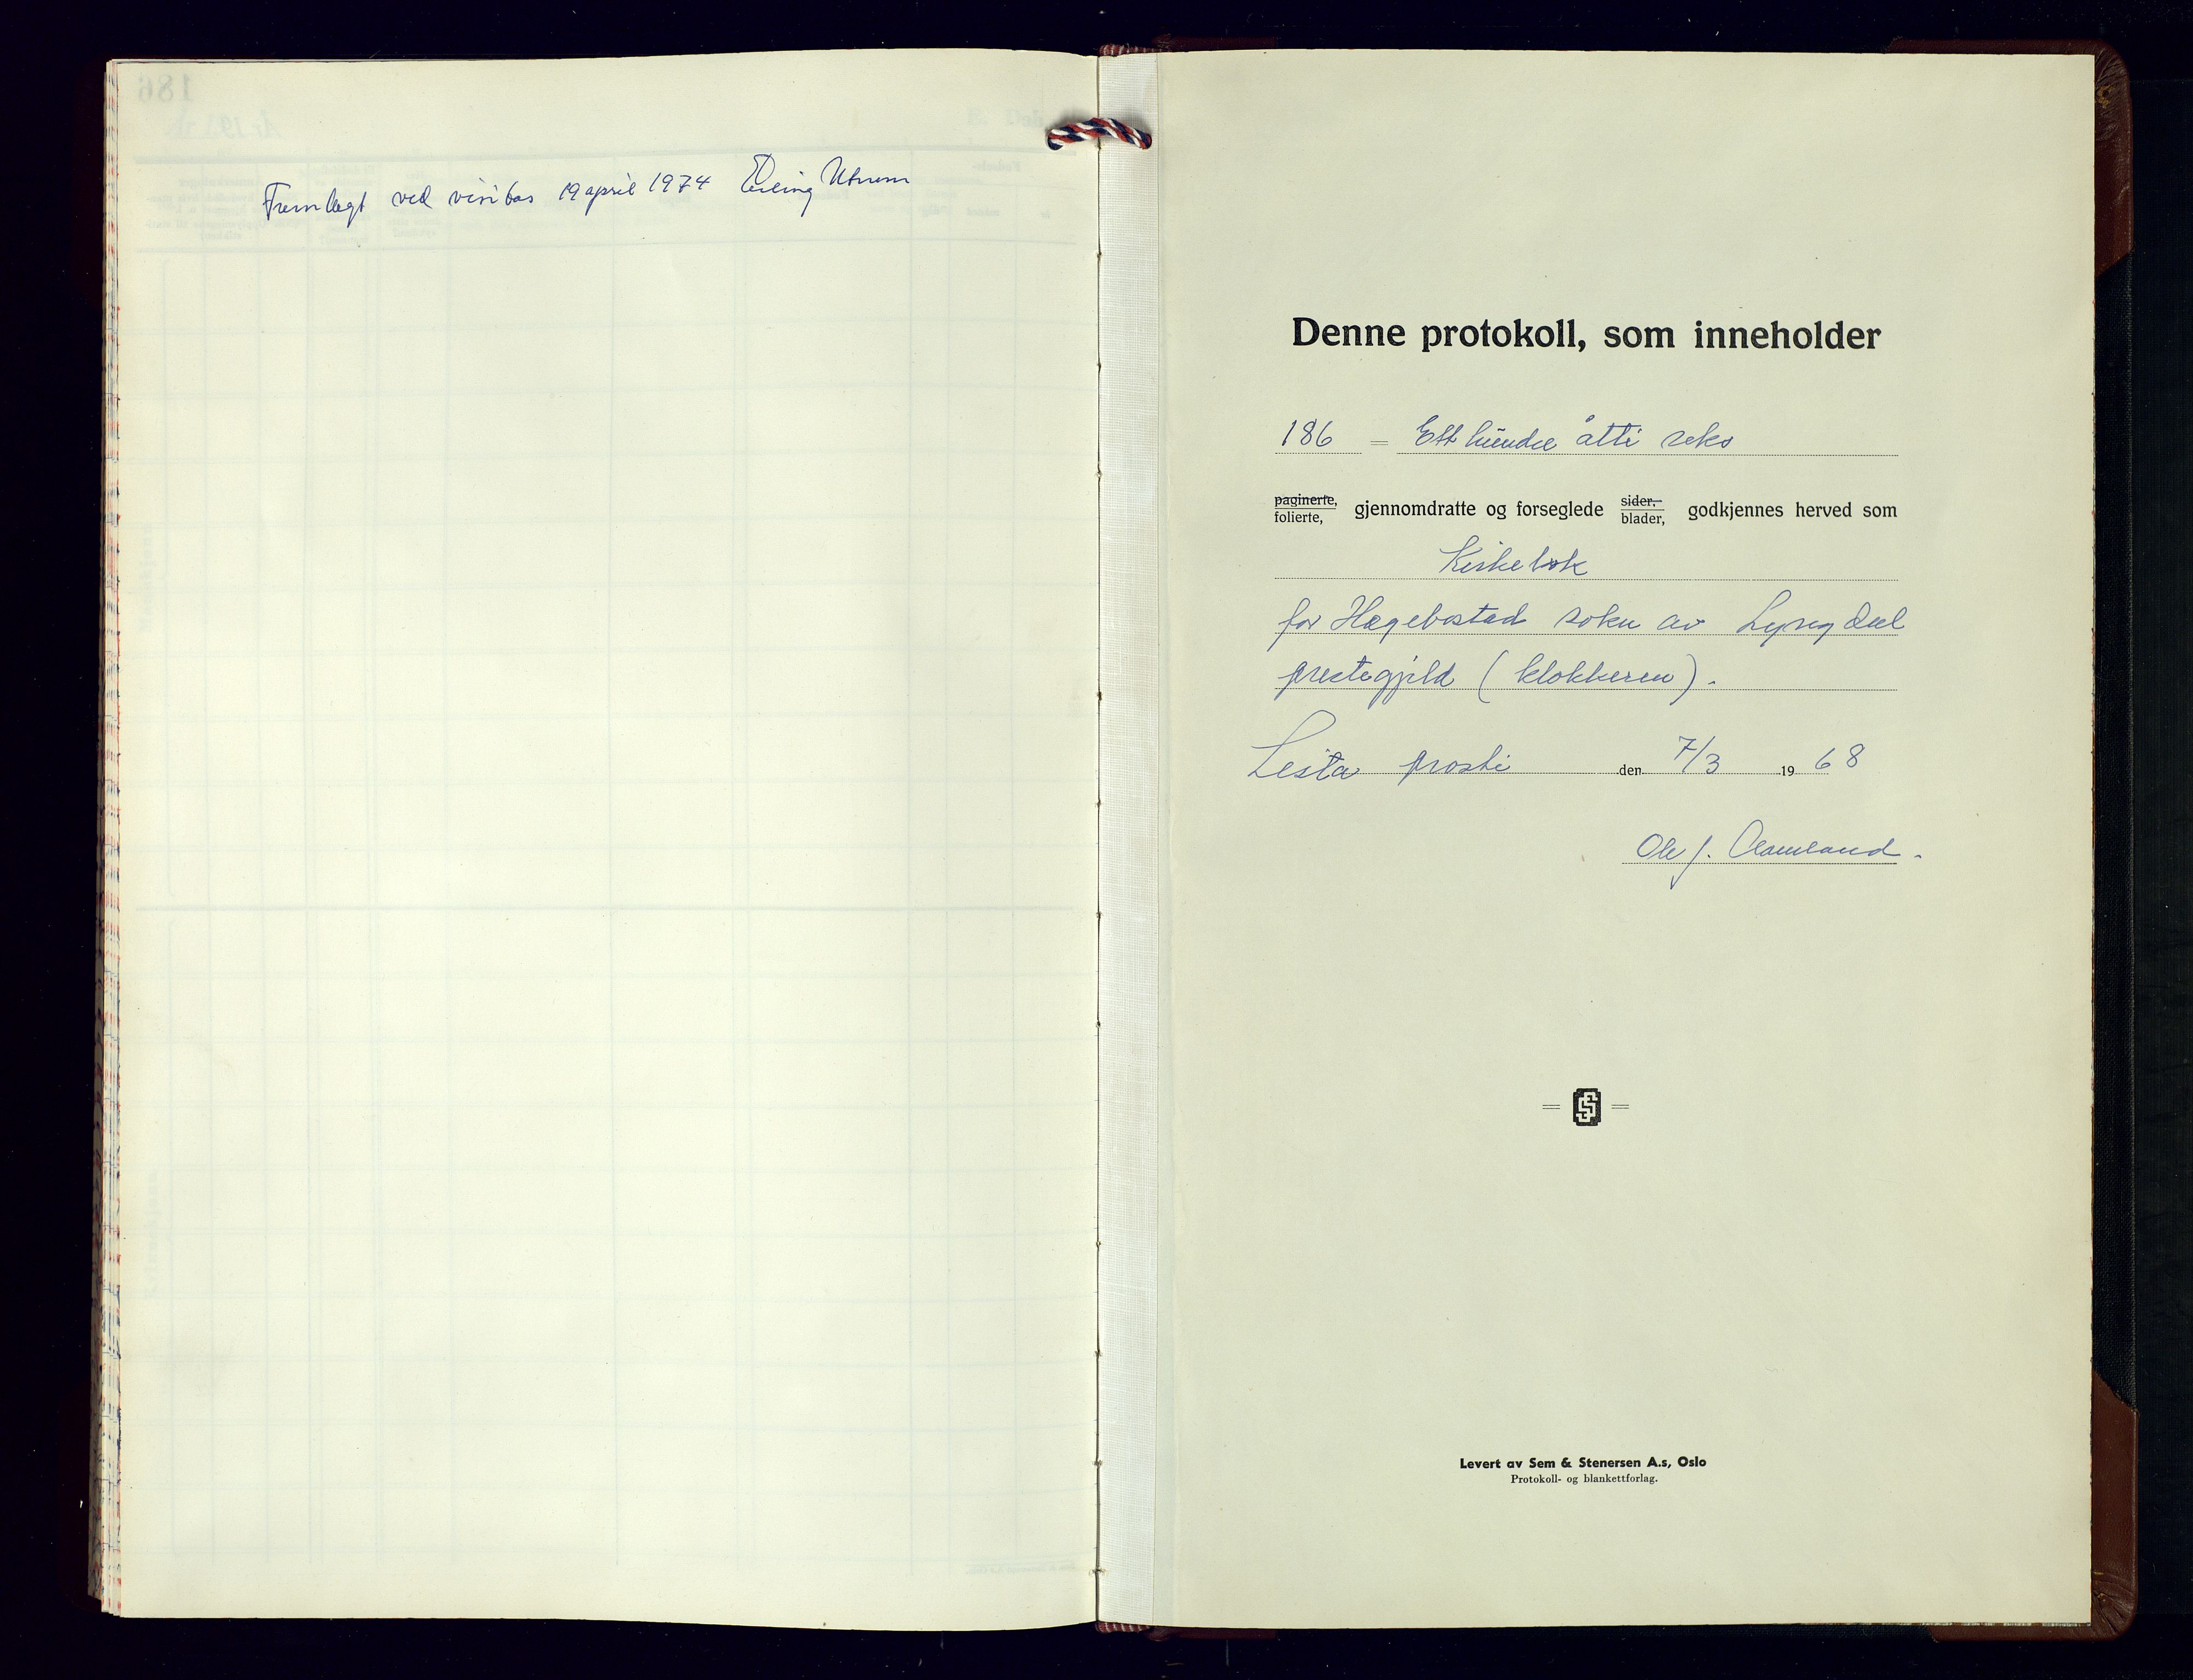 Fremlagt ved visitas 19 april 1974 Erling Utnem
Denne protokoll, som inneholder
186 = Ett hundre åtti seks
paginerte, folierte, gjennomdratte og forseglede sider, blader, godkjennes herved som
Kirkebok
for Hægebostad sokn av Lyngdal
prestegjeld (klokkeren).
Lista prosti den 7/3 19 68
Ole J.
Levert av Sem & Stenersen A.s, Oslo
Protokoll- og blankettforlag.